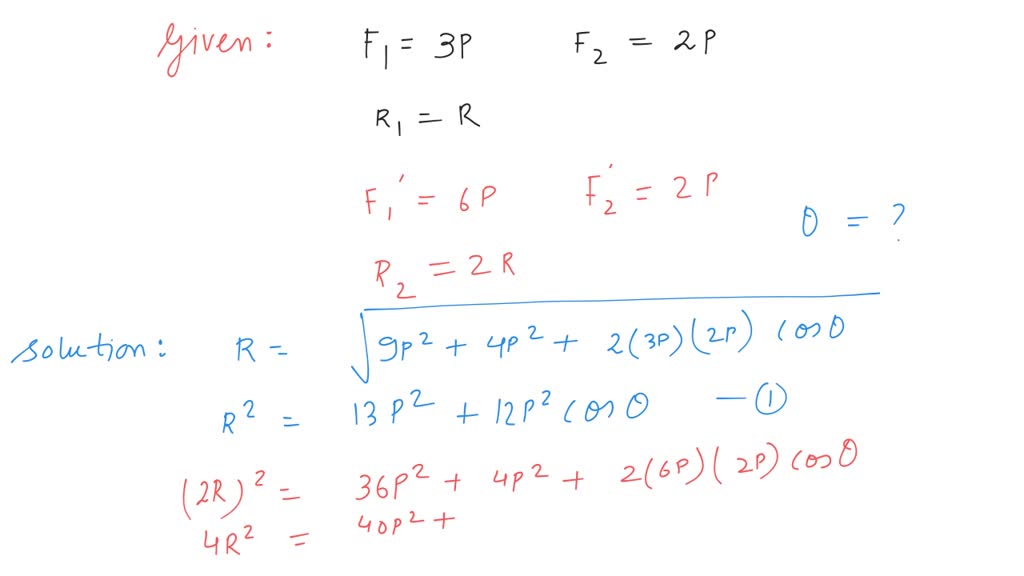 Given: F₁ = 3P F₂ = 2P
R₁ = R
F₁' = 6P F₂' = 2P
θ = ?
R₂ = 2R
Solution: R = √(9P² + 4P² + 2(3P)(2P) cosθ)
R² = 13P² + 12P² cosθ — ①
(2R)² = 36P² + 4P² + 2(6P)(2P) cosθ
4R² = 40P² +